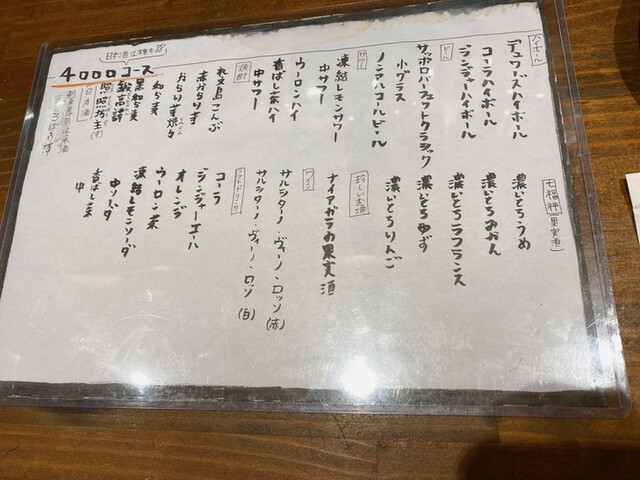 日本酒1種を経
4000コース
ハイボール
デュワーズハイボール
コーラハイボール
ジンジャーハイボール
ビール
サッポロパーフェクトクラシック
小グラス
ノンアルコールビール
サワー
凍結レモンサワー
中サワー
ウーロンハイ
香ばし茶ハイ
中サワー
焼酎
礼文島こんぶ
赤からり芋
おらり芋
和ら麦
黒和ら麦
銀高譚
照照坊主
日本酒
七福神(果実酒)
濃いとろうめ
濃いとろみかん
濃いとろラフランス
濃いとろゆず
濃いとろりんご
珍しいお酒
ナイアガラの果実酒
ワイン
サルシターノ・ヴィーノ・ロッソ(赤)
サルシターノ・ヴィーノ・ロッソ(白)
ソフトドリンク
コーラ
ジンジャーエール
オレンジ
ウーロン茶
凍結レモンソーダ
中ソーダ
香ばし茶
中